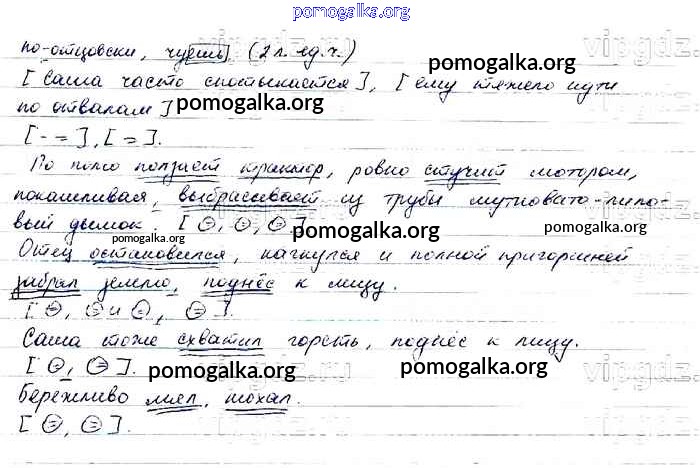 pomogalka.org
по-отцовски, чуешь (2 л. ед. ч.)
[Саша часто спотыкается], [ему тяжело идти
по отвалам]
pomogalka.org
[- =], [=].
По полю ползает трактор, ровно стучит мотором,
покашливая, выбрасывает из трубы мутновато-лило-
вый дымок. [⊖, ⊖, ⊖]
pomogalka.org
Отец остановился, нагнулся и полной пригоршней
забрал землю, поднёс к лицу.
[⊖, ⊖ и ⊖, ⊖].
Саша тоже схватил горсть, поднёс к лицу.
[⊖, ⊖].
pomogalka.org pomogalka.org
Бережливо мял, нюхал.
[⊖, ⊖].
vipgdz.